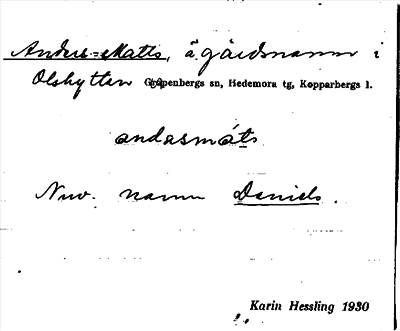 Anders-Matts, ä gårdsnamn i
Olshyttan Garpenbergs sn, Hedemora tg, Kopparbergs l.
andasmáts
Nuv. namn Daniels.
Karin Hessling 1930